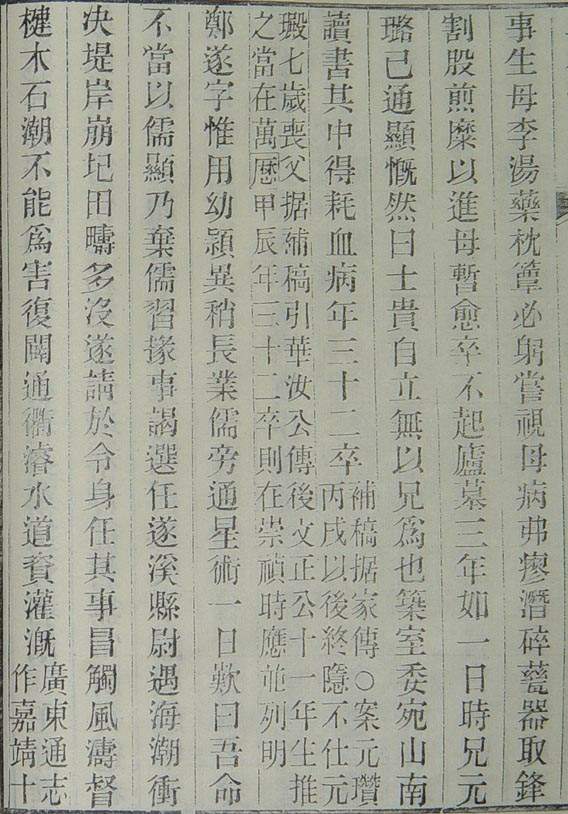 事生母李湯藥枕簟必躬嘗視母病弗瘳潛碎甆器取鋒
割股煎糜以進母暫愈卒不起廬墓三年如一日時兄元
璐已通顯慨然曰士貴自立無以兄爲也築室委宛山南
讀書其中得耗血病年三十二卒補稿据家傳○案元瓚
丙戌以後終隱不仕元
璬七歲喪父据補稿引華汝公傳後文正公十一年生推
之當在萬厯甲辰年三十二卒則在崇禎時應並列明
鄭遂字惟用幼穎異稍長業儒旁通星術一日歎曰吾命
不當以儒顯乃棄儒習掾事謁選任遂溪縣尉遇海潮衝
决堤岸崩圮田疇多沒遂請於令身任其事冒觸風濤督
楗木石潮不能爲害復闢通衢濬水道資灌漑廣東通志
作嘉靖十